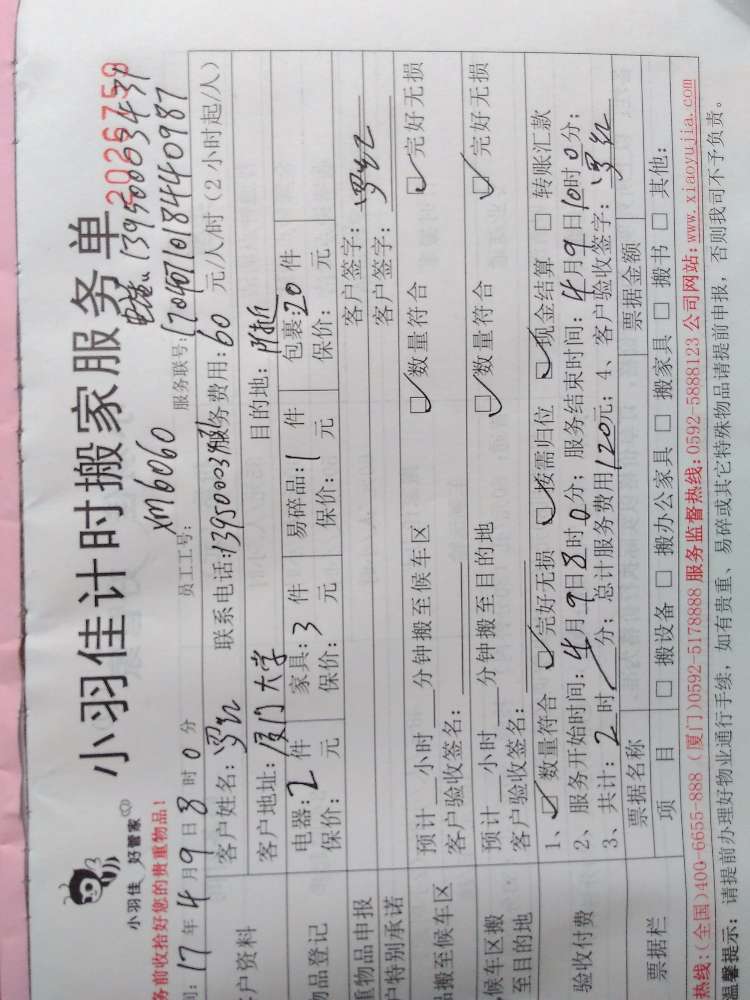 小羽佳 好管家
小羽佳计时搬家服务单
2026759
电话:13950003431
务前收拾好您的贵重物品!
员工工号: XM6060 服务联号: 170407101844098?
17年4月9日8时0分
户资料 客户姓名: 罗红 联系电话:139500034 服务费用:60 元/人/时(2小时起/人)
客户地址: 厦门大学 目的地: 附近
物品登记 电器:2 件 家具:3 件 易碎品:1 件 包裹:20 件
保价: 元 保价: 元 保价: 元 保价: 元
重物品申报 客户签字:
户特别承诺 客户签字: 罗红
品搬至候车区 预计 小时 分钟搬至候车区 ☑数量符合 ☑完好无损
客户验收签名:
候车区搬至目的地 预计 小时 分钟搬至目的地 ☑数量符合 ☑完好无损
客户验收签名:
验收付费 1、☑数量符合 ☑完好无损 ☑按需归位 ☑现金结算 □转账汇款
2、服务开始时间:4月9日8时0分; 服务结束时间:4月9日10时0分;
3、共计:2时 分; 总计服务费用120元; 4、客户验收签字: 罗红
票据栏 票据名称 票据金额
项目 □搬设备 □搬办公家具 □搬家具 □搬书 □其他:
热线:(全国)400-6655-888 (厦门)0592-5178888 服务监督热线:0592-5888123 公司网站:www.xiaoyujia.com
温馨提示: 请提前办理好物业通行手续, 如有贵重、易碎或其它特殊物品请提前申报, 否则我司不予负责。